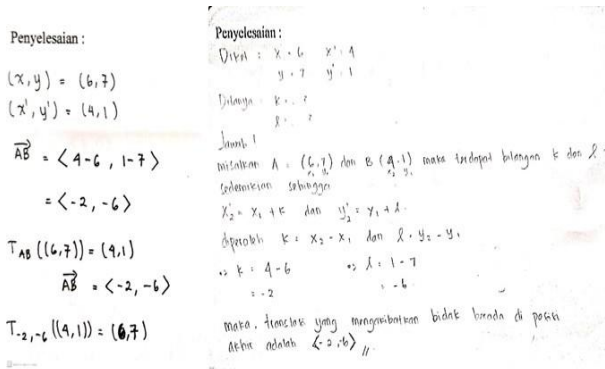 Penyelesaian :
(x,y) = (6,7)
(x',y') = (4,1)
AB = <4-6, 1-7>
= <-2, -6>
T_AB ((6,7)) = (4,1)
AB = <-2, -6>
T_-2,-6 ((4,1)) = (6,7)
Penyelesaian :
Diket : x = 6 x' = 4
y = 7 y' = 1
Ditanya k = . ?
l = . ?
Jawab !
misalkan A = (6,7) dan B (4,1) maka terdapat bilangan k dan l
x₁ y₁ x₂ y₂
sedemikian sehingga
x₂' = x₁ + k dan y₂' = y₁ + l.
diperoleh k = x₂ - x₁ dan l = y₂ - y₁
=> k = 4-6 => l = 1-7
= -2 = -6
maka, translasi yang mengakibatkan bidak berada di posisi
akhir adalah <-2,-6> //